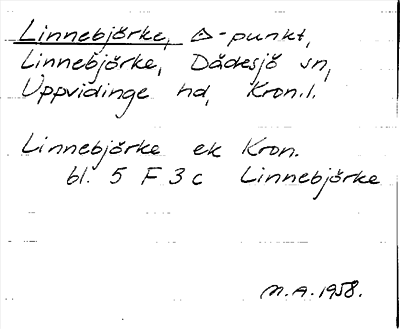 Linnebjörke, △-punkt,
Linnebjörke, Dädesjö sn,
Uppvidinge hd, Kron.l.
Linnebjörke ek Kron.
bl. 5 F 3 c Linnebjörke
M.A. 1958.